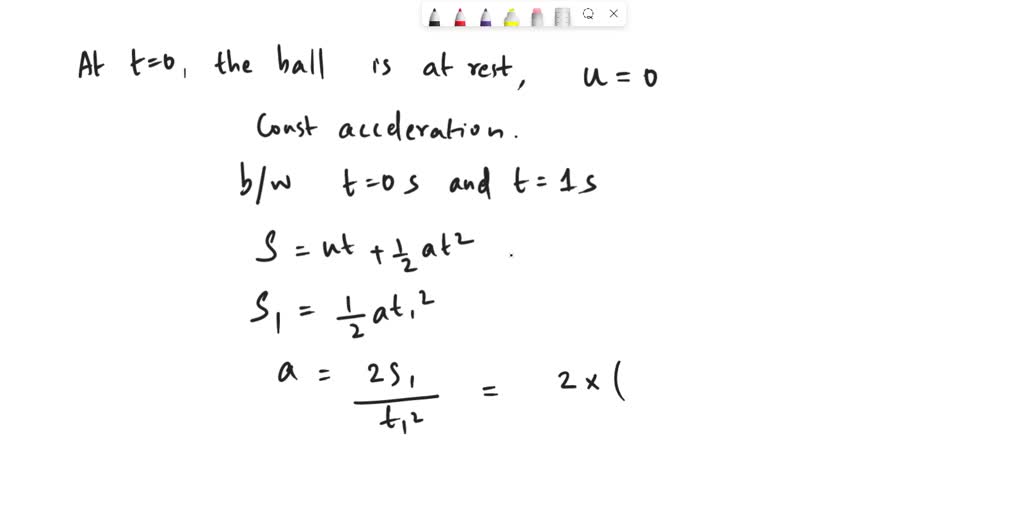 At t=0, the ball is at rest, u = 0
Const acceleration.
b/w t=0s and t=1s
S = ut + 1/2 at²
S₁ = 1/2 at₁²
a = 2S₁/t₁² = 2 × (